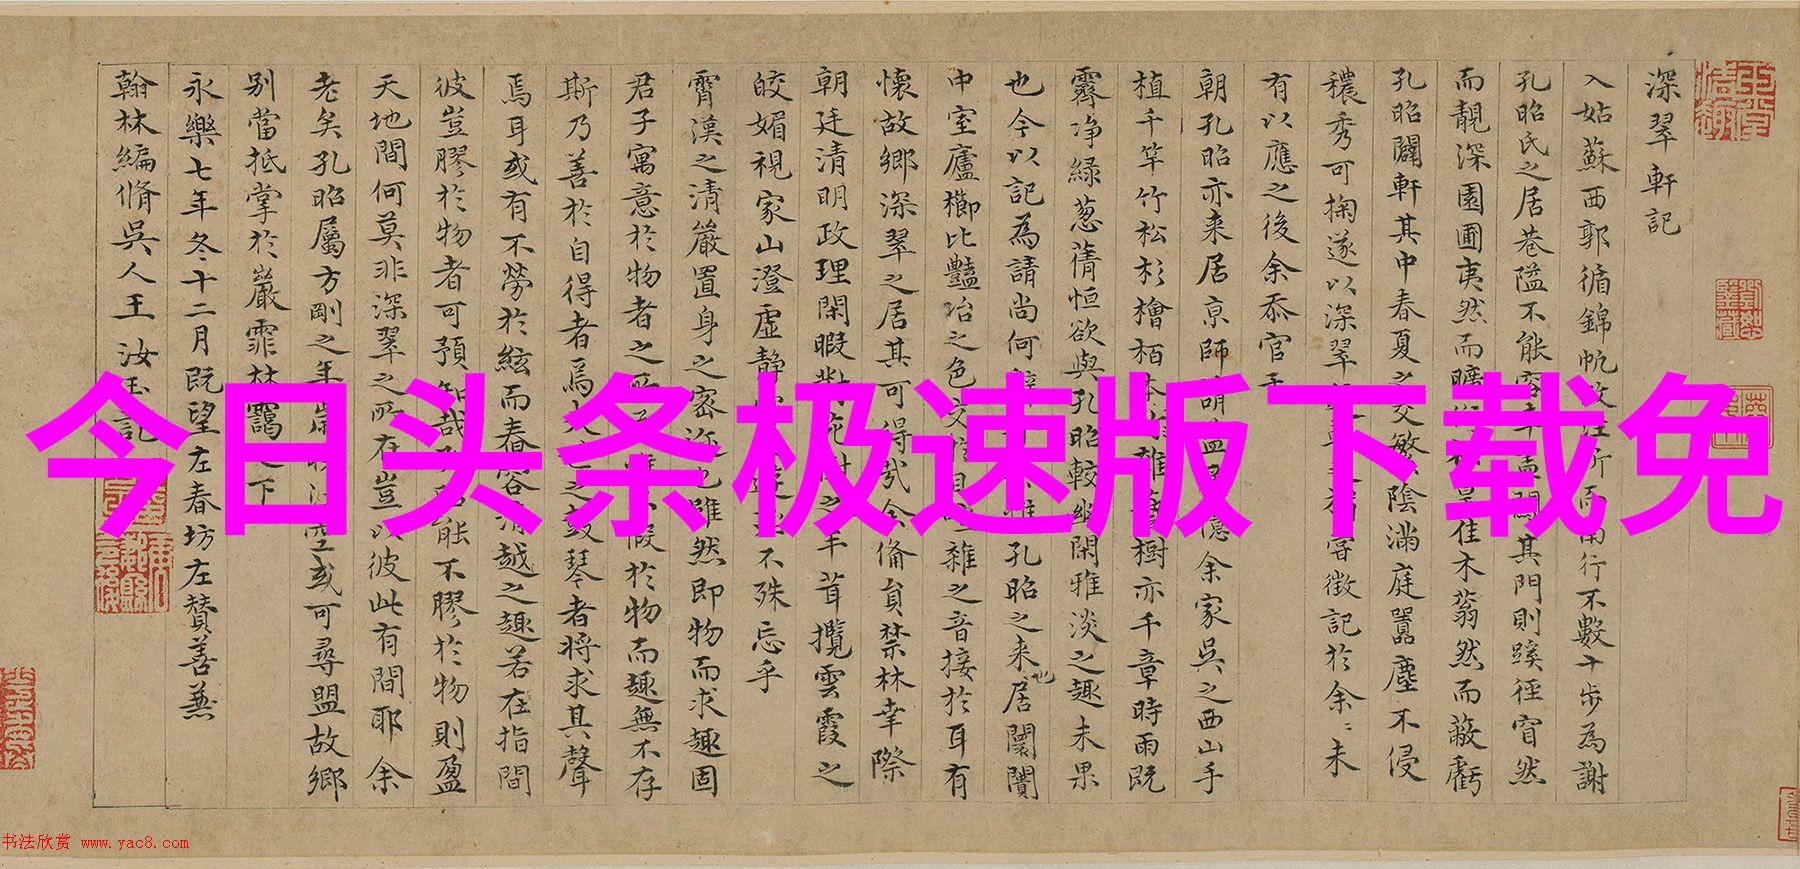 深翠軒記
入姑蘇西郭循錦帆
行不數十步為謝
孔昭氏之居巷隘不能容
其門則蹊徑窅然
而靚深園圃夷然而曠
佳木蓊然而蔽虧
孔昭闢軒其中春夏之交敏陰滿庭囂塵不侵
穠秀可掬遂以深翠
嘗徵記於余余未
有以應之後余忝官
朝孔昭亦来居京師
余家吳之西山手
植千竿竹松杉檜栢
樹亦千章時雨既
霽净緑葱蒨恒欲與孔昭較幽閑雅淡之趣未果
也今以記為請尚何
孔昭之来居也闤闠
中室廬櫛比豔冶之色交
雜之音接於耳有
懷故鄉深翠之居其可得哉余俻員禁林幸際
朝廷清明政理閑暇對花
茸攬雲霞之
皎媚視家山澄虚静
不殊忘乎
霄漢之清嚴置身之密
雖然即物而求趣固
君子寓意於物者之所
假於物而趣無不存
斯乃善於自得者焉
之鼓琴者將求其聲
焉耳或有不勞於絃而舂容清越之趣若在指間
彼豈膠於物者可預知哉
能不膠於物則盈
天地間何莫非深翠之所在豈以彼此有間耶余
老矣孔昭屬方剛之年
或可尋盟故鄉
别當抵掌於巖霏林靄之下
永樂七年冬十二月既望左春坊左贊善兼
翰林編脩吳人王汝玉記
今日头条极速版下载免
书法欣赏 www.yac8.com